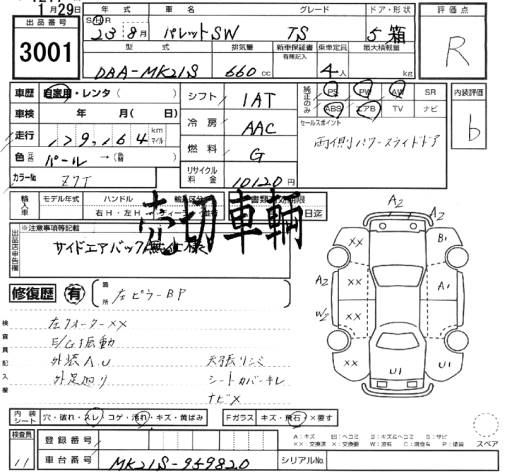 1月29日
出品番号
3001
年式 車名 グレード ドア・形状
S・H・R 23 8月 パレットSW TS 5 箱
評価点
R
型式 排気量 新車保証書 有無記入 乗車定員 最大積載量
DBA-MK21S 660cc 4人 kg
車歴 自家用・レンタ( )
車検 年 月( 日)
走行 129,164 km マイル
色 パール →(替 )
カラーNo. Z7T
シフト 1AT
冷房 AAC
燃料 G
リサイクル料金 10120円
純正のみ PS PW AW SR
ABS エアB TV ナビ
内装評価
b
セールスポイント
両側パワースライドドア
輸入車 モデル年式 ハンドル 輸入区分
右H・左H ディーラー
売切車輌
※注意事項等記載
サイドエアバック無仕様
修復歴 有 箇所 左ピラーBP
検査員記入欄
左クォーターXX
E/G振動
外装A.U
外足廻り
天張りシミ
シートカバーキレ
ナビX
A2
A2
XX
XX
XX
XX
A2
W2
B1
A1
U1
U1
内装シート 穴・破れ・スレ・コゲ・汚れ・キズ・黄ばみ
Fガラス キズ・飛石・X要す
A:キズ U:ヘコミ B:キズ&ヘコミ S:サビ
XX:交換済 X:要交換 W:波有 C:腐食有 P:塗装
スペア
検査員
11
登録番号
車台番号 MK21S-959820
シリアルNo.